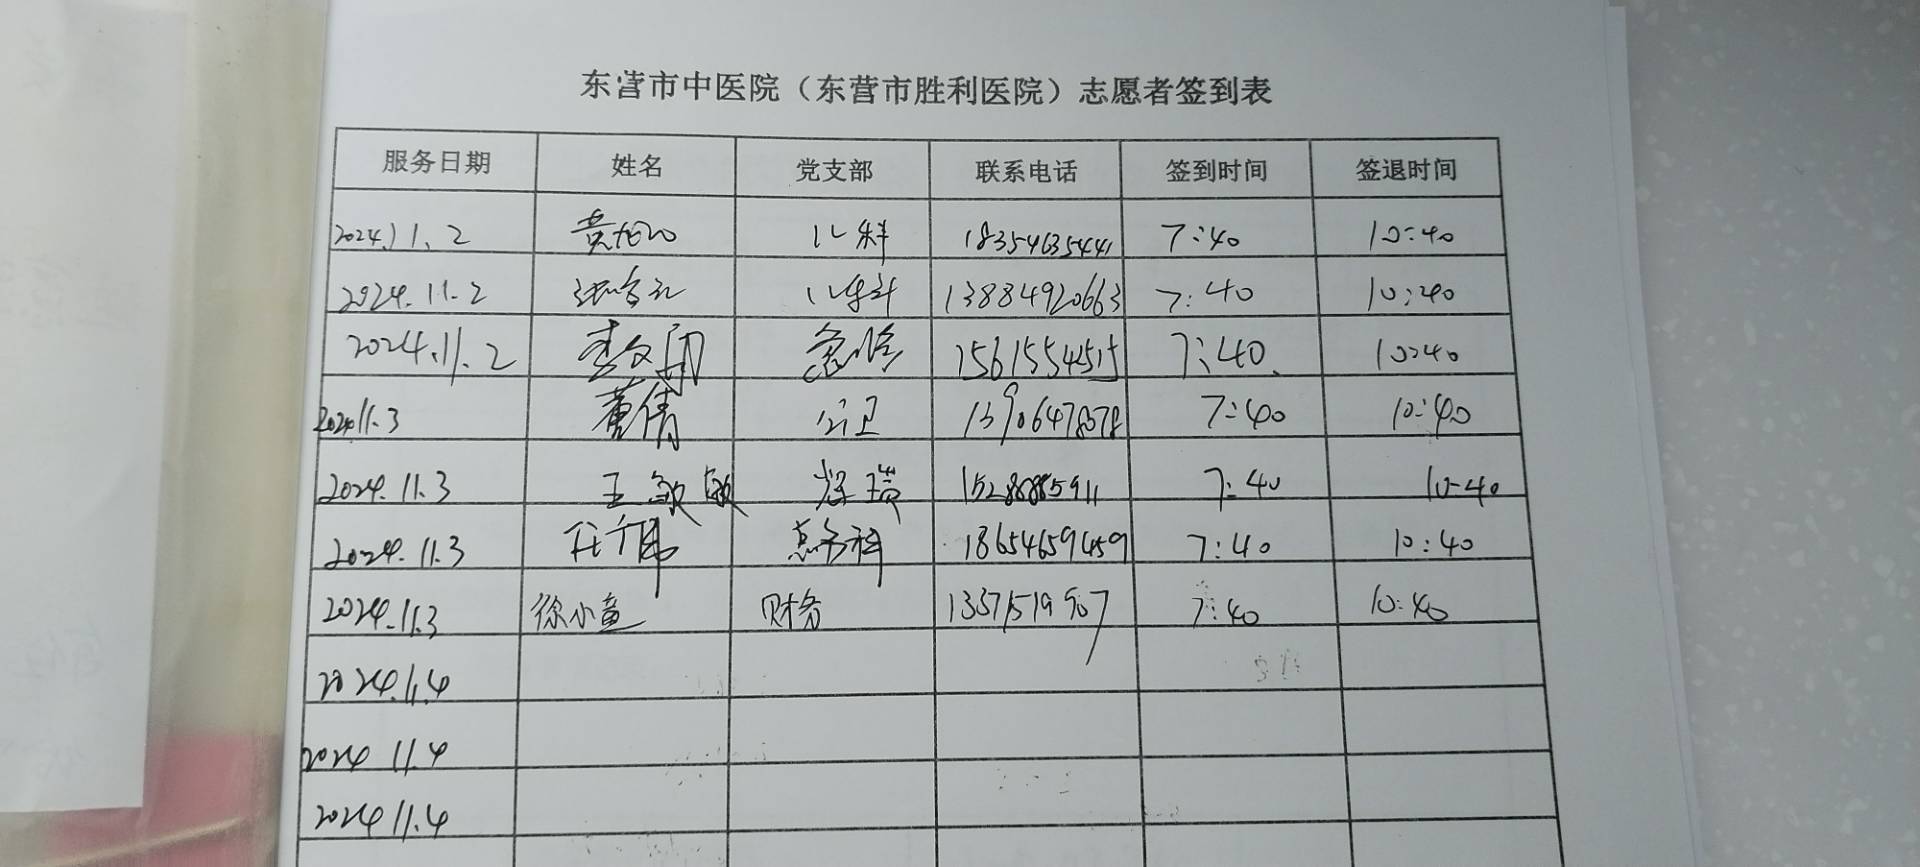 东营市中医院（东营市胜利医院）志愿者签到表
服务日期 姓名 党支部 联系电话 签到时间 签退时间
2024.11.2 儿科 18354635441 7:40 10:40
2024.11.2 儿科 13884920663 7:40 10:40
2024.11.2 李文闭 急诊 15615542515 7:40 10:40
2024 11.3 董倩 公卫 13906478078 7:40 10:40
2024.11.3 王敏敏 15288885911 7:40 10-40
2024.11.3 任伟 总务科 18654659459 7:40 10:40
2024.11.3 徐小童 财务 13371519907 7:40 10:40
2024.11.4
2024 11.4
2024 11.4